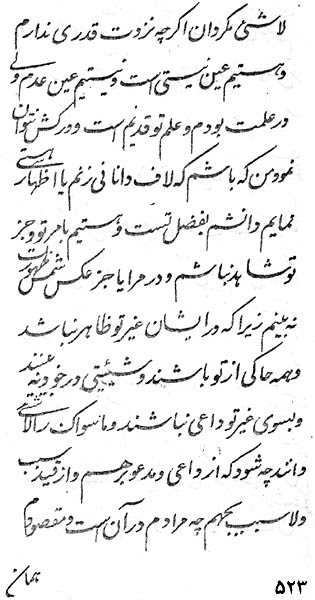 لا شئی مگردان اگرچه نزدت قدری ندارم
و هستیم عین نیستی است و نیستیم عین عدم ولی
در علمت بودم و علم تو قدیم است و درکش نتوان
نمود من که باشم که لاف دانائی زنم یا اظهار هستی
نمایم دانشم بفضل تست و هستیم بامر تو و جز
تو شاهد نباشم و در مرایا جز عکس شمس ظهورت
نه بینم زیرا که در ایشان غیر تو ظاهر نباشد
و همه حاکی از تو باشند و شیئیتی در خود نه بینند
و بسوی غیر تو داعی نباشند و ما سواک را لا شئی
دانند چه شود که از داعی و مدعو برهم و از قید سبب
و لا سبب بجهم چه مرادم در آن است و مقصودم
همان
۵۲۳